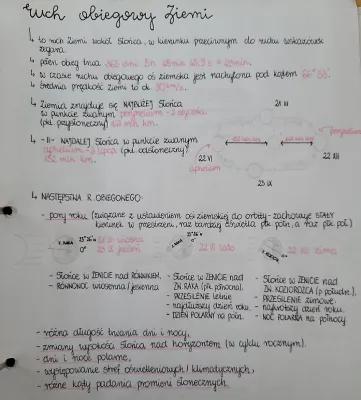 Ruch obiegowy Ziemi
↳ to ruch Ziemi wokół Słońca, w kierunku przeciwnym do ruchu wskazówek
zegara.
↳ pełen obieg trwa 365 dni 5h 48min
↳ w czasie ruchu obiegowego oś ziemska jest nachylona pod kątem 66° 33'
↳ średnia prędkość Ziemi to ok. 30 km/s.
↳ Ziemia znajduje się NAJBLIŻEJ Słońca
w punkcie zwanym peryhelium
(pkt. przysłoneczny) 147 mln km.
21 III
peryhelium
↳ -||- NAJDALEJ Słońca w punkcie zwanym
aphelium (pkt. odsłoneczny)
152 mln km.
22 VI
aphelium
23 IX
↳ NASTĘPSTWA R. OBIEGOWEGO:
- pory roku (związane z ustawieniem osi ziemskiej do orbity - zachowuje STAŁY
kierunek w przestrzeni, raz bardziej oświetla płk. półn., a raz płk. poł.)
21 III wiosna
23 IX jesień
22 VI lato
22 XII zima
- Słońce w ZENICIE nad RÓWNIKIEM,
- RÓWNONOC wiosenna/jesienna
- Słońce w ZENICIE nad
ZN. RAKA (płk. północna).
- PRZESILENIE letnie
- najdłuższy dzień roku.
- DZIEŃ POLARNY na półn.
- Słońce w ZENICIE nad
ZN. KOZIOROŻCA (płk. południe),
- PRZESILENIE zimowe
- najkrótszy dzień roku.
- NOC POLARNA na północy
- różna długość trwania dni i nocy,
- zmiany wysokości Słońca nad horyzontem (w cyklu rocznym).
- dni i noce polarne,
- występowanie stref oświetleniowych/klimatycznych,
- różne kąty padania promieni słonecznych.